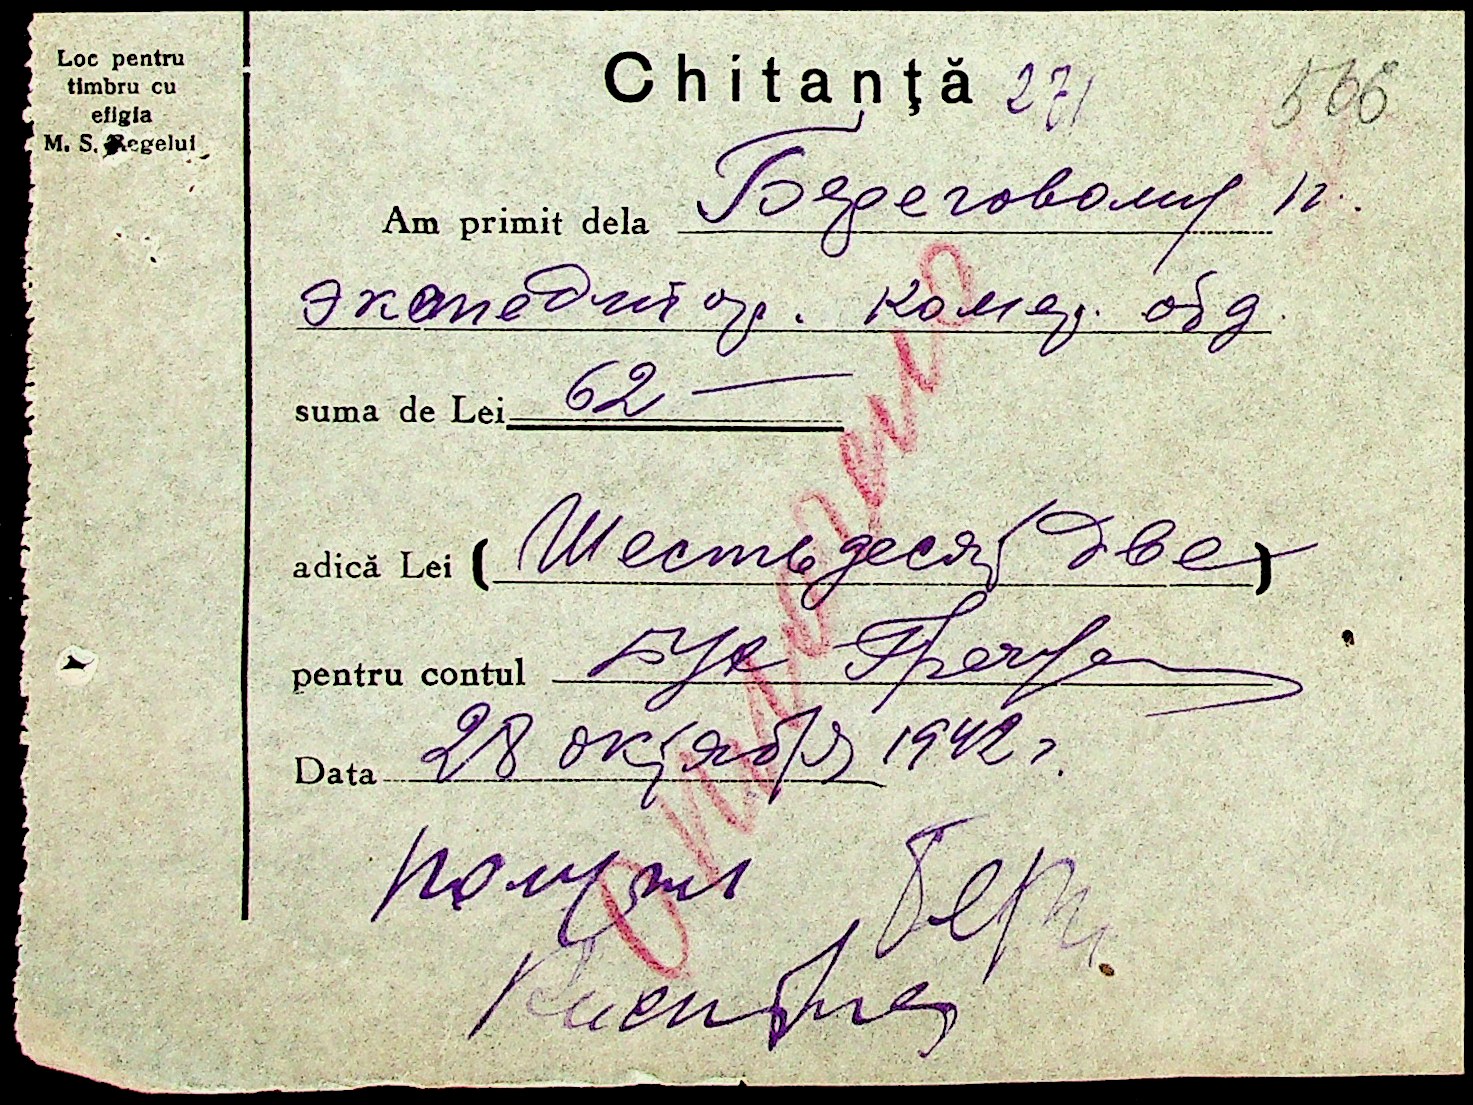 Loc pentru
timbru cu
efigia
M. S. Regelui
Chitanţă 271
566
Am primit dela Береговому П.
экспедитор. комер. обд.
suma de Lei 62 —
adică Lei (Шестьдесят две)
pentru contul
Data 28 октября 1942 г.
Оплачено